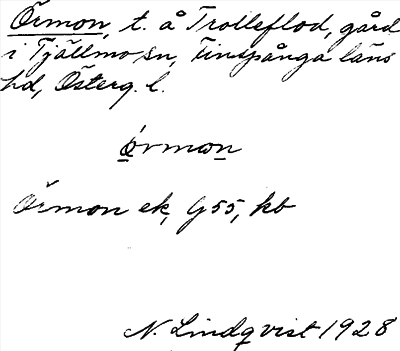 Örmon, t. å Trolleflod, gård
i Tjällmo sn, Finspånga läns
hd, Österg. l.
ørmωn
Örmon ek, G55, kb
N. Lindqvist 1928